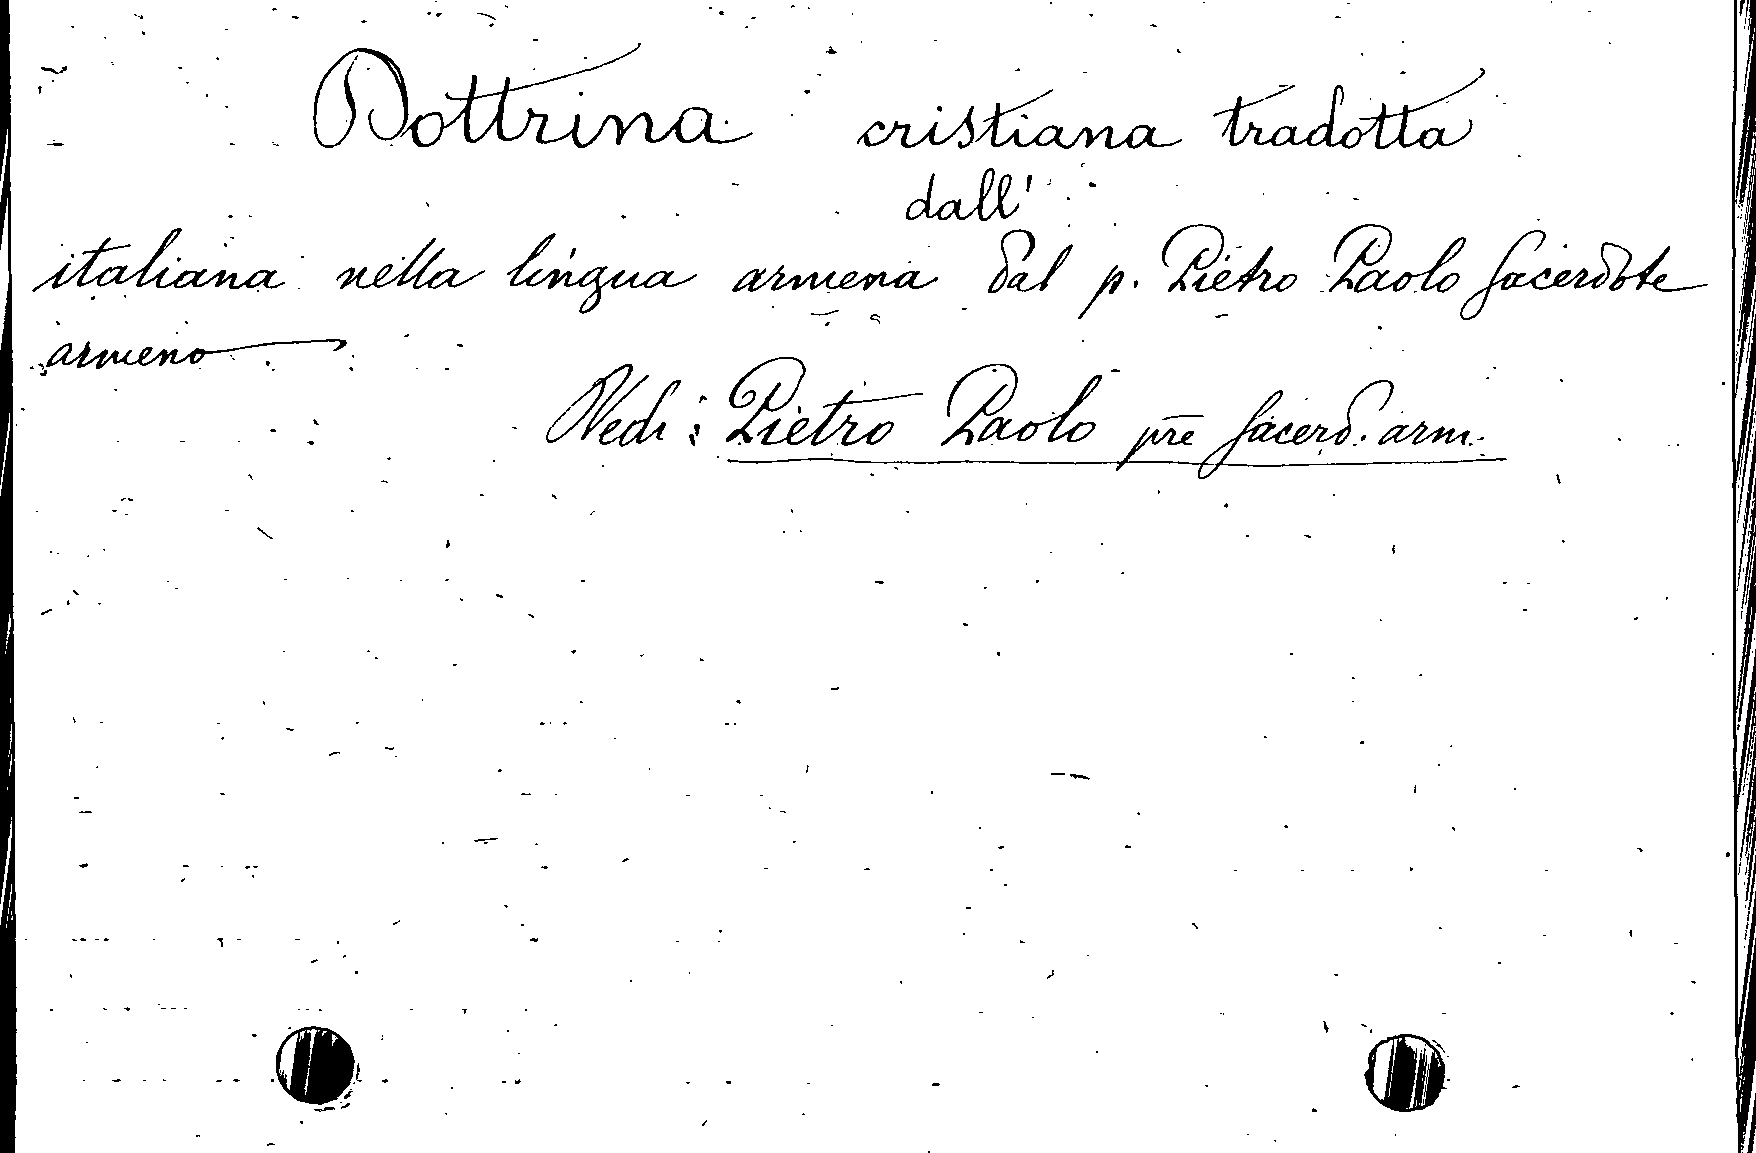 Dottrina cristiana tradotta
dall'
italiana nella lingua armena dal p. Pietro Paolo sacerdote
armeno
Vedi: Pietro Paolo pre sacerd. arm.